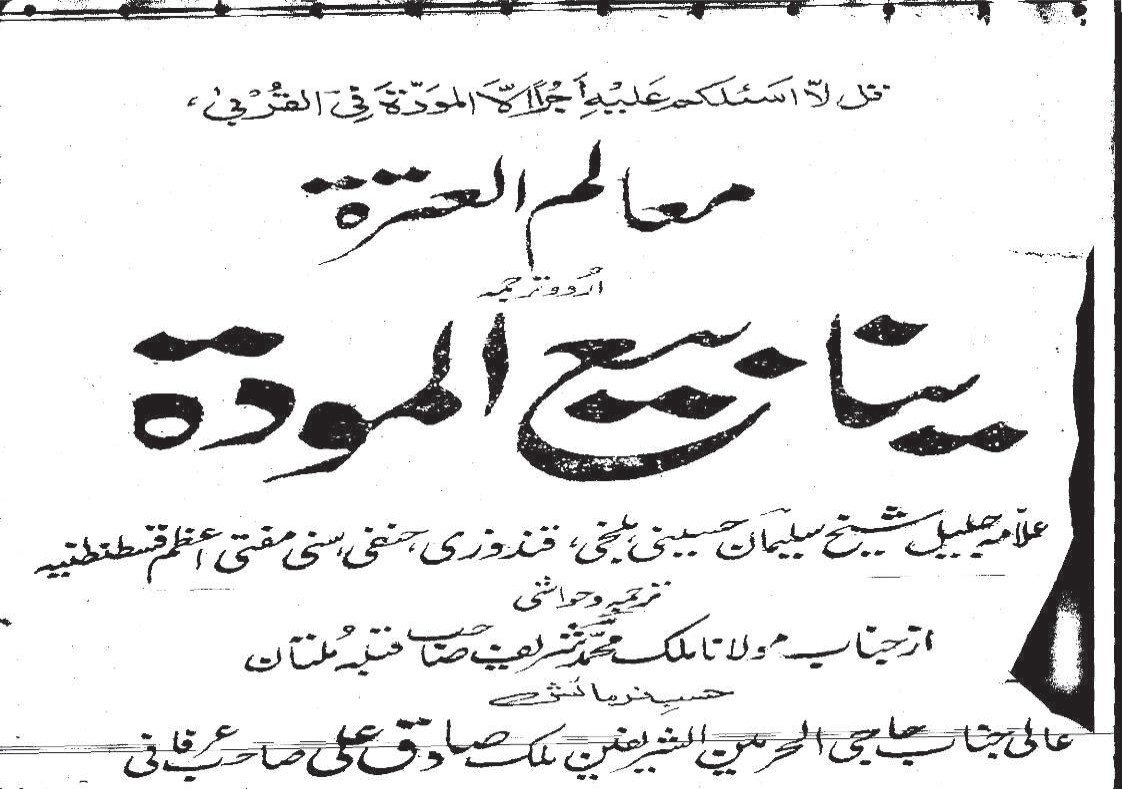 قل لَّا اَسْئَلُكُمْ عَلَيْهِ اَجْرًا اِلَّا الْمَوَدَّةَ فِي الْقُرْبٰى،
معالم العترة
اُردو ترجمہ
ینابیع المودة
علّامہ جلیل شیخ سلیمان حسینی بلخی، قندوزی، حنفی، سنی مفتی اعظم قسطنطنیہ
ترجمہ و حواشی
از جناب مولانا ملک محمّد شریف صاحب قبلہ مُلتان
حسبِ فرمائش
عالی جناب حاجی الحرمین الشریفین ملک صادق علی صاحب عرفانی